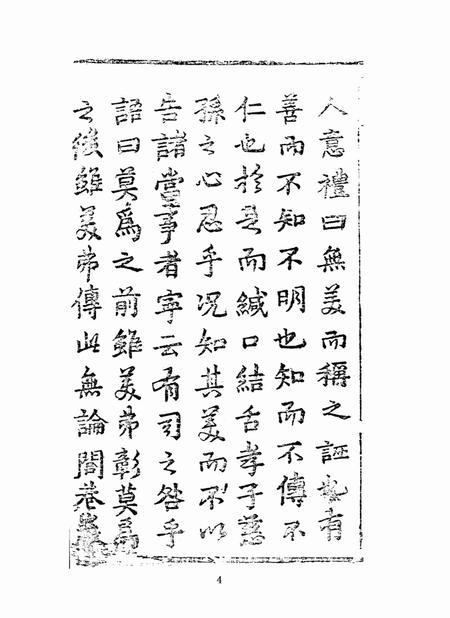 人意禮曰無美而稱之誣也有
善而不知不明也知而不傳不
仁也於是而緘口結舌孝子慈
孫之心忍乎况知其美而不以
告諸當事者寜云有司之咎乎
語曰莫爲之前雖美弗彰莫爲
之後雖美弗傳此無論閭巷
4